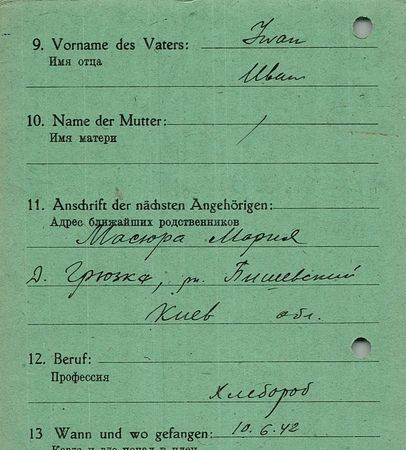 9. Vorname des Vaters: Iwan
Имя отца
Иван
10. Name der Mutter: /
Имя матери
11. Anschrift der nächsten Angehörigen:
Адрес ближайших родственников
Масюра Мария
д. Грюзка, рн. Бишевский
Киев обл.
12. Beruf:
Профессия
Хлебороб
13 Wann und wo gefangen: 10.6.42
Когда и где попал в плен